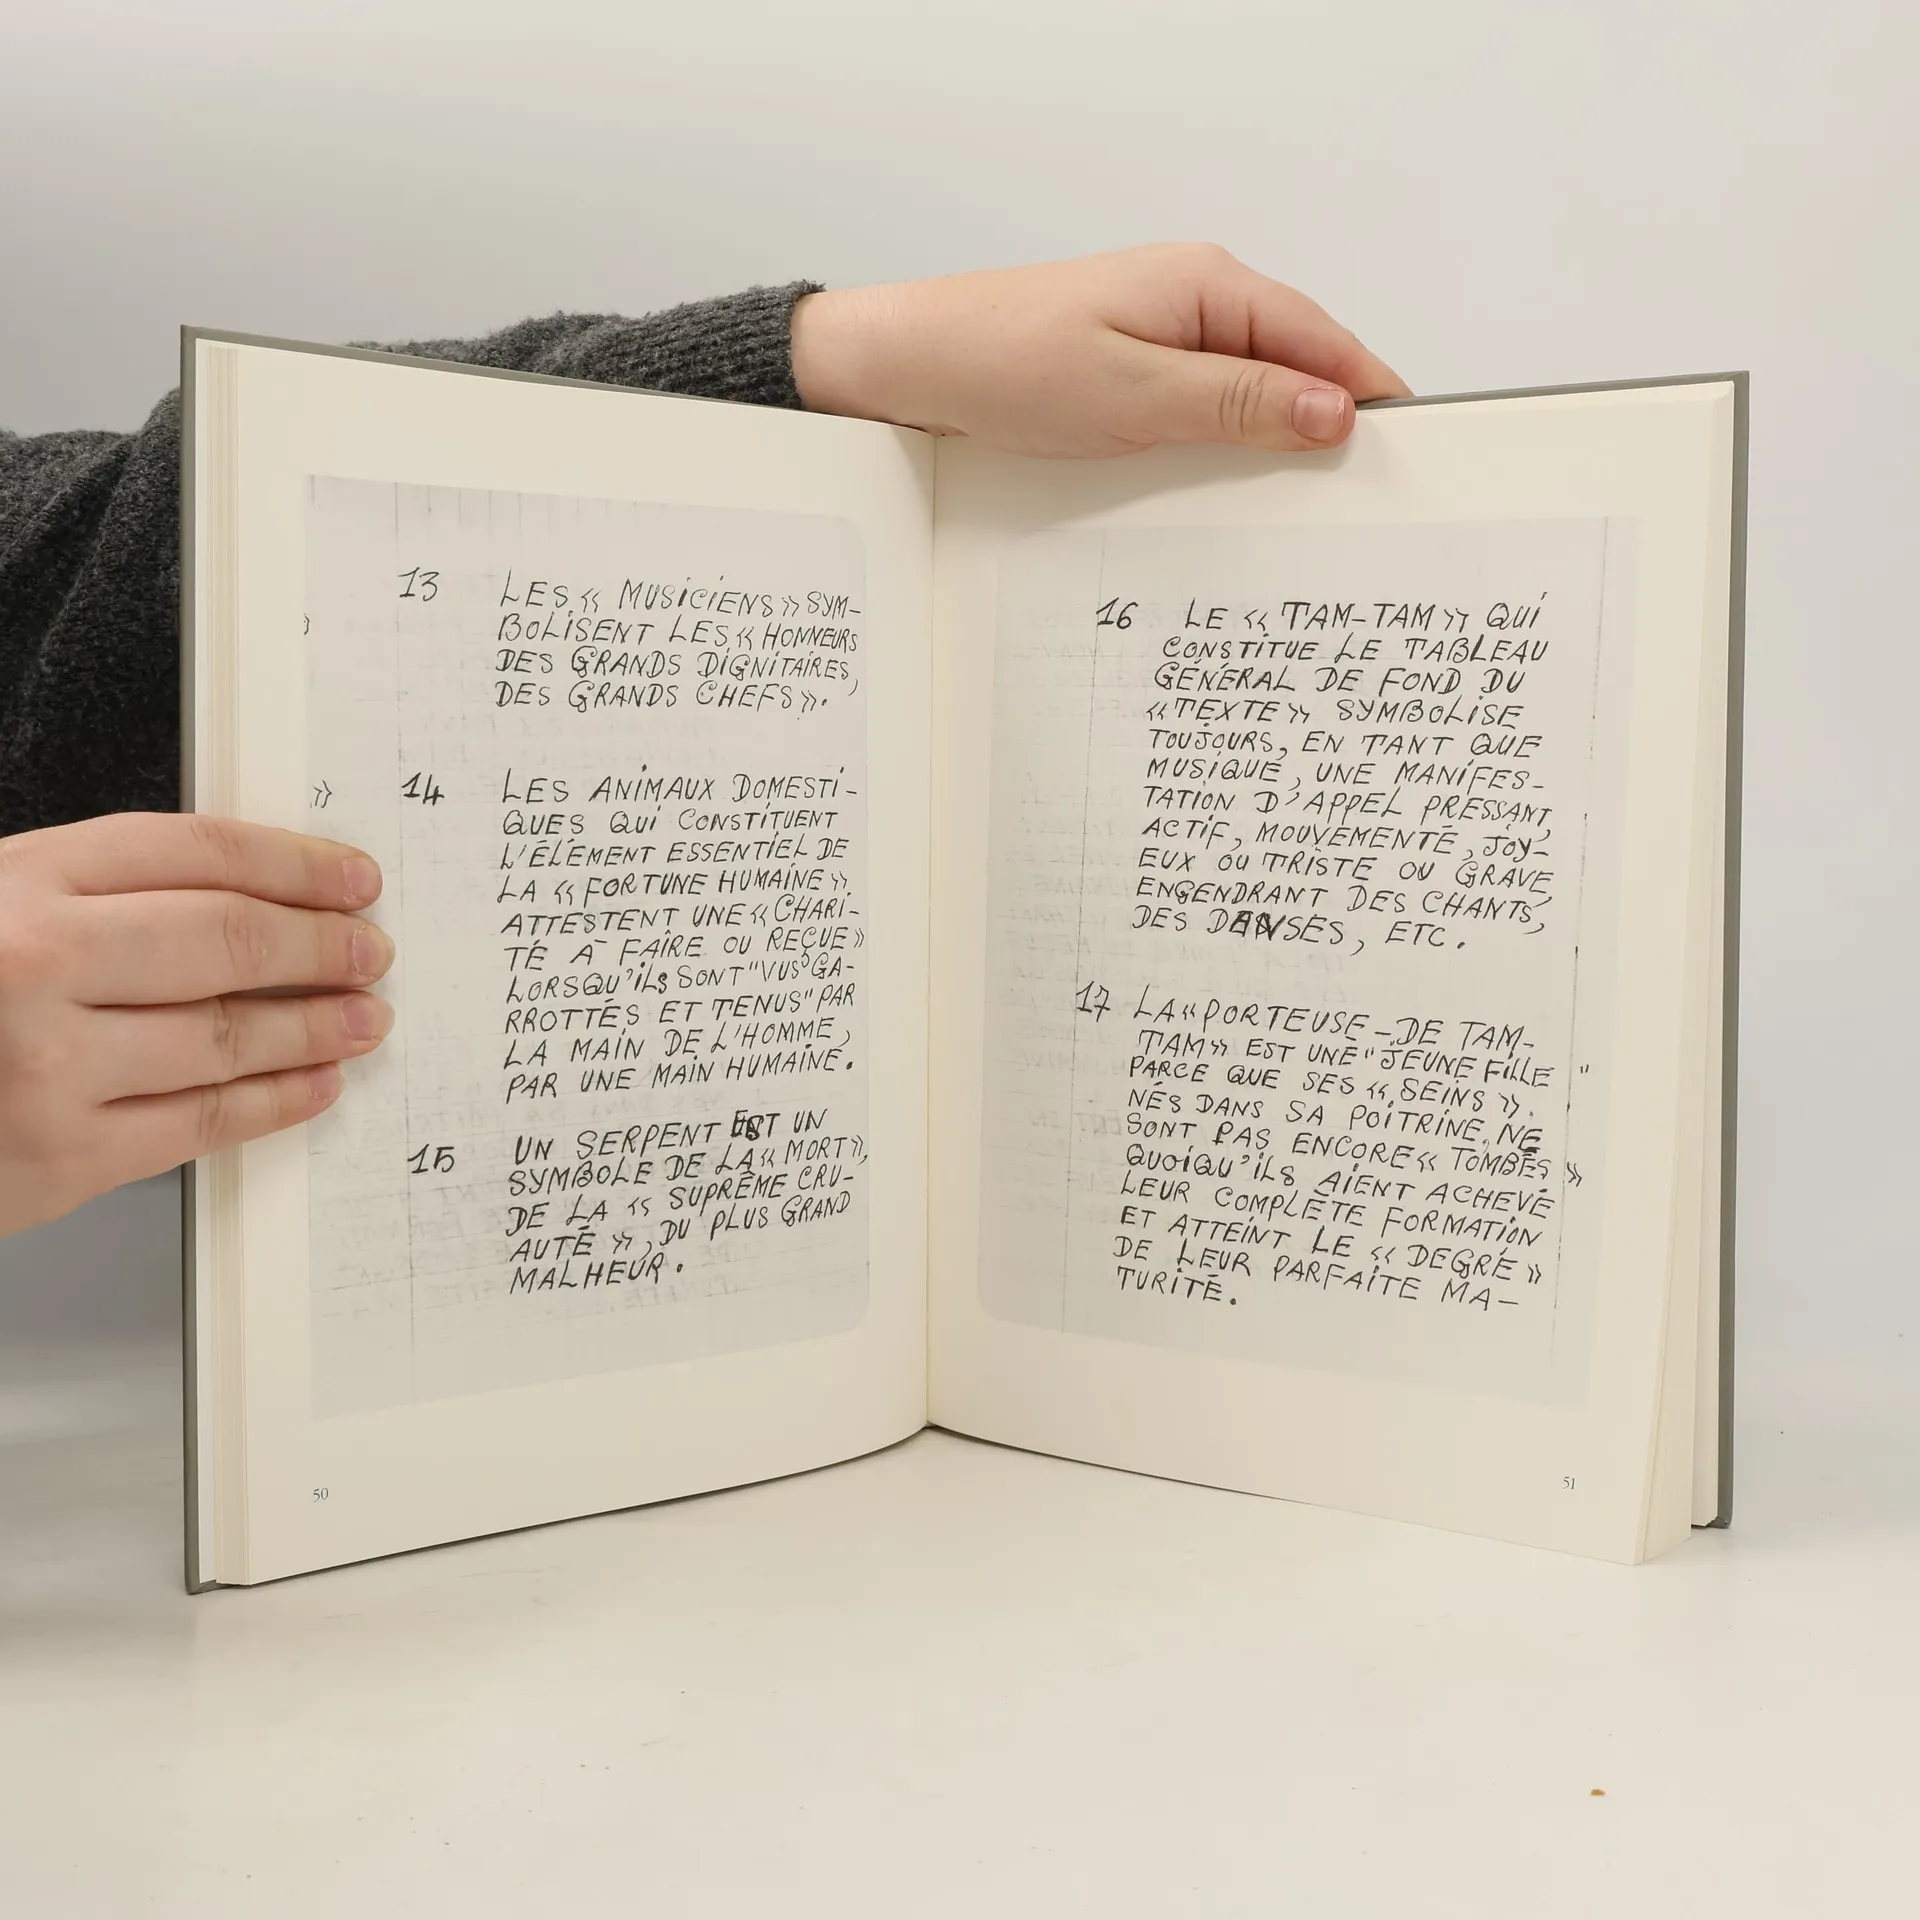 13 LES « MUSICIENS » SYM-
BOLISENT LES « HONNEURS
DES GRANDS DIGNITAIRES,
DES GRANDS CHEFS ».
»
14 LES ANIMAUX DOMESTI-
QUES QUI CONSTITUENT
L'ÉLÉMENT ESSENTIEL DE
LA « FORTUNE HUMAINE »
ATTESTENT UNE « CHARI-
TÉ À FAÎRE OU REÇUE »
LORSQU'ILS SONT "VUS GA-
RROTTÉS ET TENUS" PAR
LA MAIN DE L'HOMME,
PAR UNE MAIN HUMAINE.
15 UN SERPENT EST UN
SYMBOLE DE LA « MORT »,
DE LA « SUPRÊME CRU-
AUTÉ », DU PLUS GRAND
MALHEUR.
50
16 LE « TAM-TAM » QUI
CONSTITUE LE TABLEAU
GÉNÉRAL DE FOND DU
« TEXTE » SYMBOLISE
TOUJOURS, EN TANT QUE
MUSIQUE, UNE MANIFES-
TATION D'APPEL PRESSANT,
ACTIF, MOUVEMENTÉ, JOY-
EUX OU TRISTE OU GRAVE,
ENGENDRANT DES CHANTS,
DES DANSES, ETC.
17 LA « PORTEUSE-DE TAM-
TAM » EST UNE "JEUNE FILLE "
PARCE QUE SES « SEINS ».
NÉS DANS SA POITRINE, NE
SONT PAS ENCORE « TOMBÉS »
QUOIQU'ILS AIENT ACHEVÉ
LEUR COMPLÈTE FORMATION
ET ATTEINT LE « DEGRÉ »
DE LEUR PARFAITE MA-
TURITÉ.
51